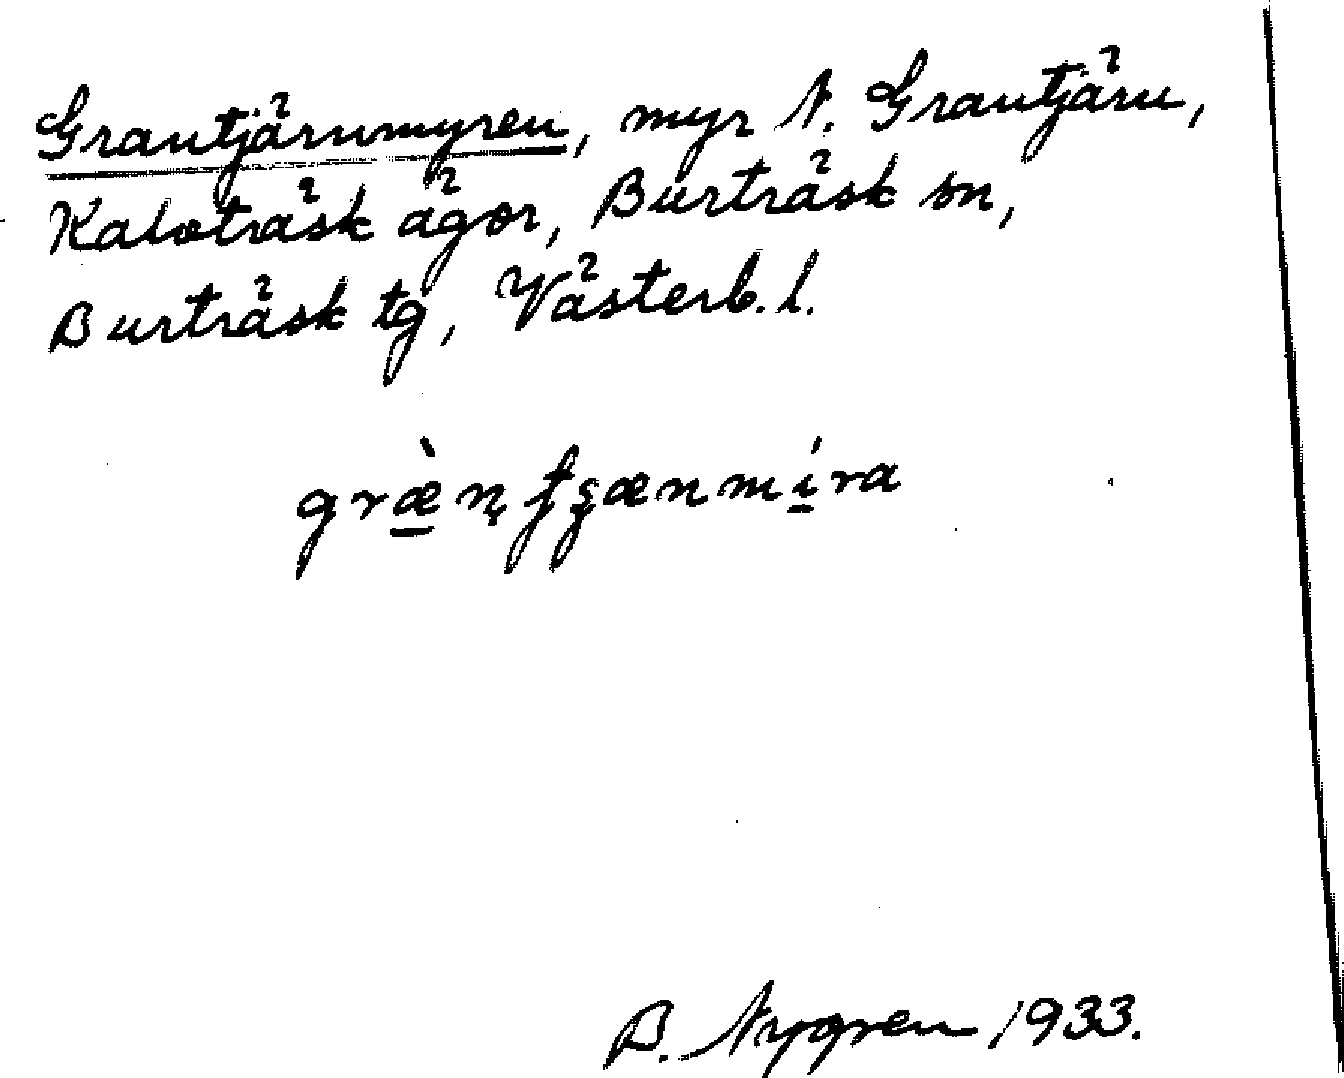 Grantjärnmyren, myr N. Grantjärn,
Kalvträsk ägor, Burträsk sn,
Burträsk tg, Västerb. l.
B. Nygren 1933.